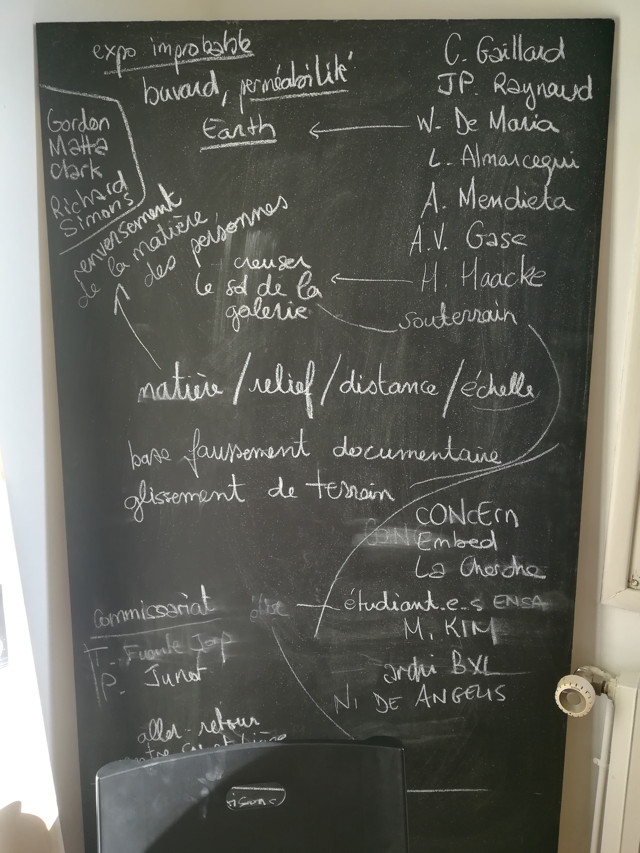 expo improbable
buvard, perméabilité
Earth
C. Gaillard
JP. Raynaud
W. De Maria
L. Almarcegui
A. Mendieta
A.V. Gase
H. Haacke
souterrain
Gordon
Matta
Clark
Richard
Simons
renversement
de la matière
des personnes
creuser
le sol de la
galerie
matière / relief / distance / échelle
base faussement documentaire
glissement de terrain
CONCErn
Embed
La Cherche
étudiant.e.s ENSA
M. KIM
archi BXL
NI DE ANGELIS
commissariat
T. Fuente
P. Junot
aller-retour
entre